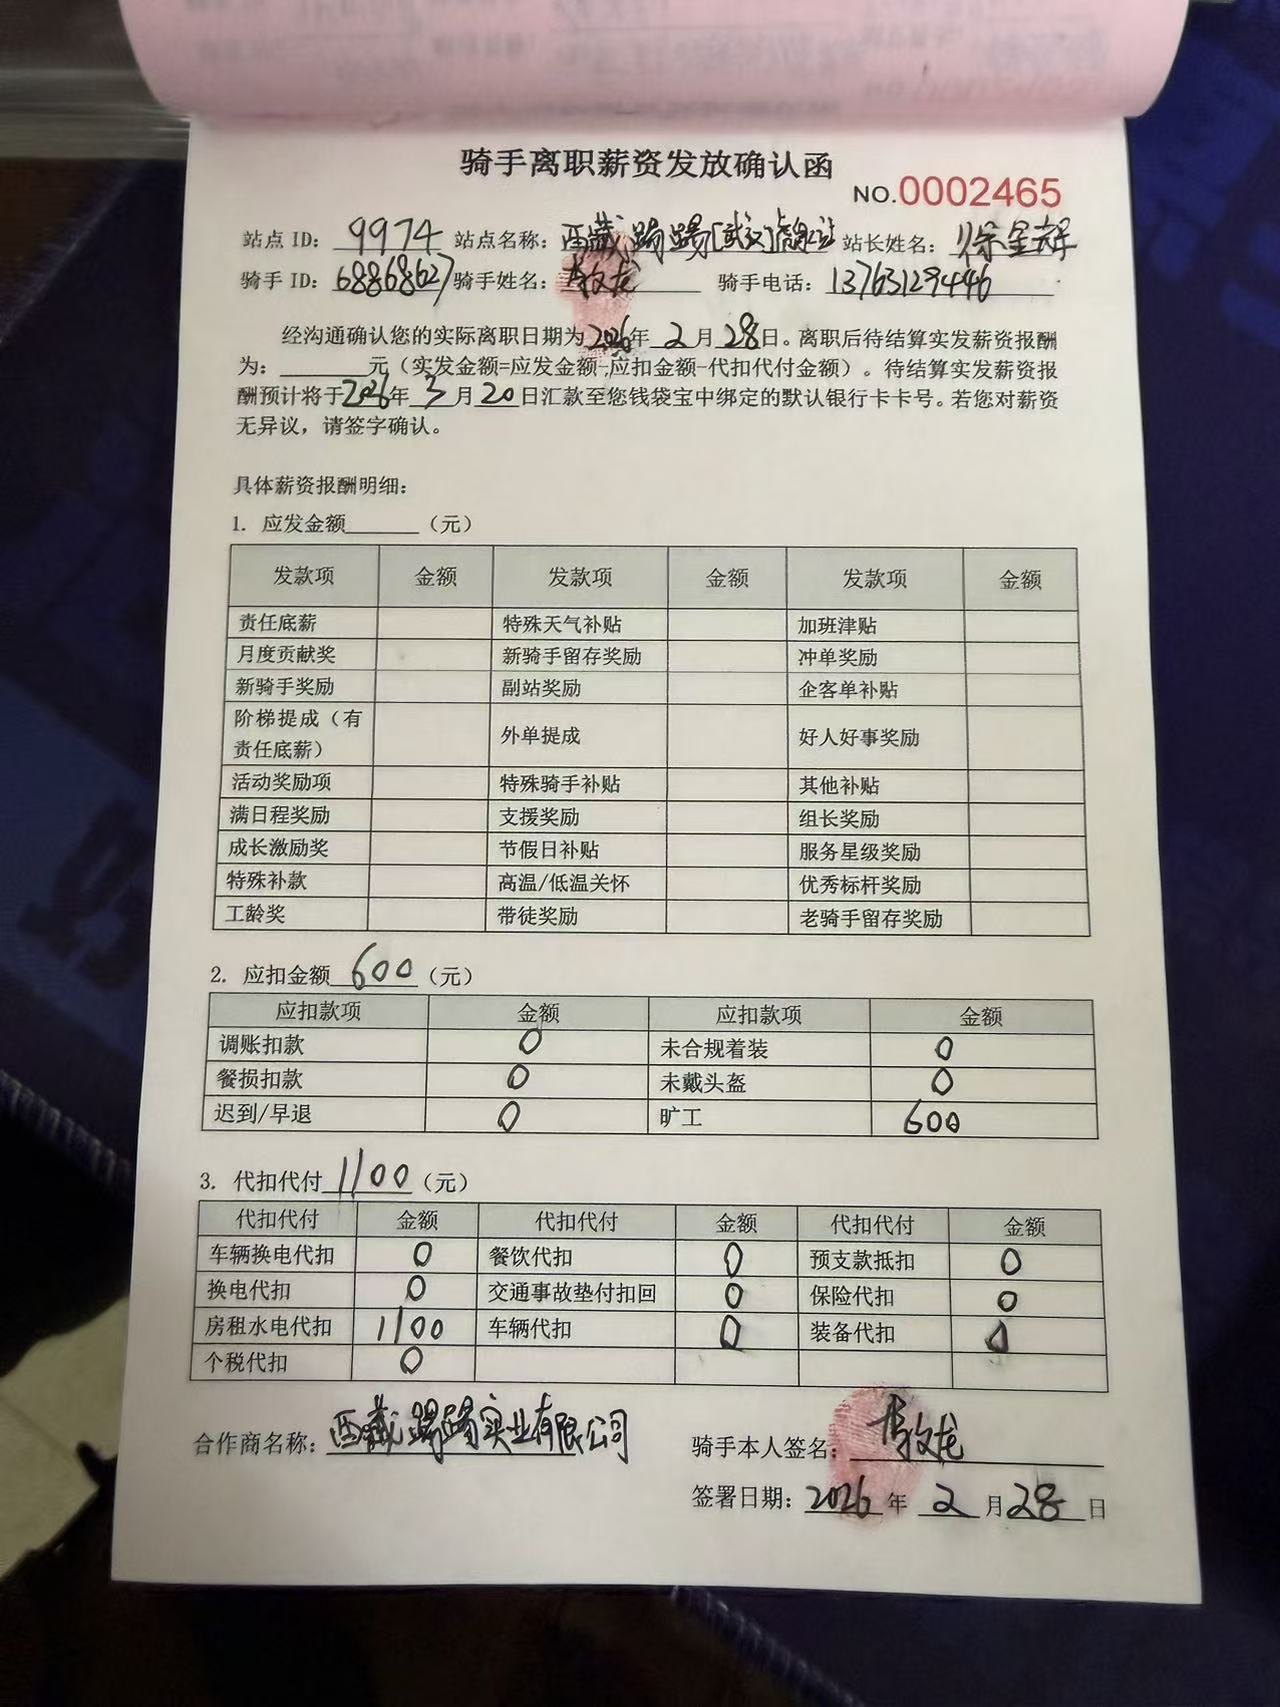 骑手离职薪资发放确认函
NO.0002465
站点 ID： 9974 站点名称： 西藏踢踢[武汉] 站长姓名： 徐星辉
骑手 ID： 68868627 骑手姓名： 李牧龙 骑手电话： 13763129446
经沟通确认您的实际离职日期为2026年 2 月 28日。离职后待结算实发薪资报酬
为：______元（实发金额=应发金额-应扣金额-代扣代付金额）。待结算实发薪资报
酬预计将于2026年 3 月 20日汇款至您钱袋宝中绑定的默认银行卡卡号。若您对薪资
无异议，请签字确认。
具体薪资报酬明细：
1. 应发金额______（元）
发款项 金额 发款项 金额 发款项 金额
责任底薪 特殊天气补贴 加班津贴
月度贡献奖 新骑手留存奖励 冲单奖励
新骑手奖励 副站奖励 企客单补贴
阶梯提成（有
责任底薪） 外单提成 好人好事奖励
活动奖励项 特殊骑手补贴 其他补贴
满日程奖励 支援奖励 组长奖励
成长激励奖 节假日补贴 服务星级奖励
特殊补款 高温/低温关怀 优秀标杆奖励
工龄奖 带徒奖励 老骑手留存奖励
2. 应扣金额 600 （元）
应扣款项 金额 应扣款项 金额
调账扣款 0 未合规着装 0
餐损扣款 0 未戴头盔 0
迟到/早退 0 旷工 600
3. 代扣代付 1100 （元）
代扣代付 金额 代扣代付 金额 代扣代付 金额
车辆换电代扣 0 餐饮代扣 0 预支款抵扣 0
换电代扣 0 交通事故垫付扣回 0 保险代扣 0
房租水电代扣 1100 车辆代扣 0 装备代扣 0
个税代扣 0
合作商名称： 西藏踢踢实业有限公司 骑手本人签名： 李牧龙
签署日期： 2026 年 2 月 28 日